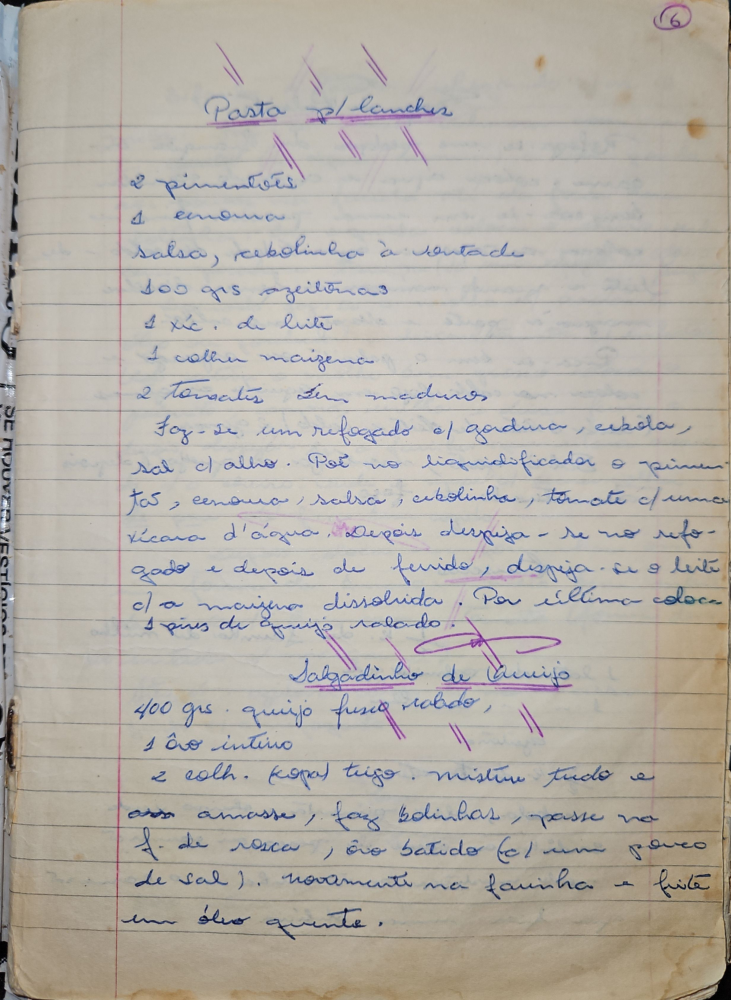 6
Pasta p/ lanches
2 pimentões
1 cenoura
salsa, cebolinha à vontade
100 grs azeitonas
1 xíc. de leite
1 colher maizena
2 tomates bem maduros
Faz-se um refogado c/ gordura, cebola,
sal c/ alho. Põe no liquidificador o pimen-
tão, cenoura, salsa, cebolinha, tomate c/ uma
xícara d'água. Depois despeja-se no refo-
gado e depois de fervido, despeja-se o leite
c/ a maizena dissolvida. Por último coloca
1 pires de queijo ralado.
Salgadinho de Queijo
400 grs. queijo fresco ralado,
1 ôvo inteiro
2 colh. (sopa) trigo. misture tudo e
amasse, faz bolinhas, passe na
f. de rosca, ôvo batido (c/ um pouco
de sal). novamente na farinha e frite
em óleo quente.
SE HOUVER VESTÍGIOS